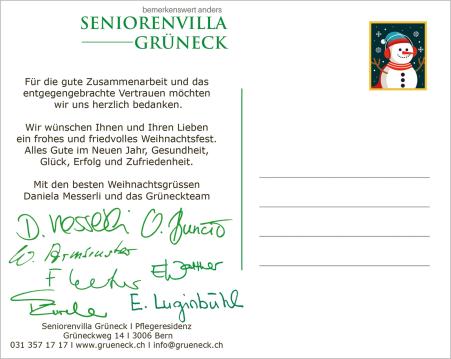 bemerkenswert anders
SENIORENVILLA
GRÜNECK
Für die gute Zusammenarbeit und das
entgegengebrachte Vertrauen möchten
wir uns herzlich bedanken.
Wir wünschen Ihnen und Ihren Lieben
ein frohes und friedvolles Weihnachtsfest.
Alles Gute im Neuen Jahr, Gesundheit,
Glück, Erfolg und Zufriedenheit.
Mit den besten Weihnachtsgrüssen
Daniela Messerli und das Grüneckteam
D. Messerli O. Buncio
W.
F
E. Luginbühl
Seniorenvilla Grüneck I Pflegeresidenz
Grüneckweg 14 I 3006 Bern
031 357 17 17 I www.grueneck.ch I info@grueneck.ch